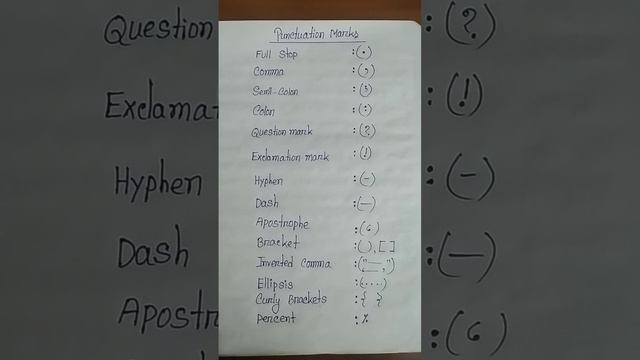 Punctuation Marks
Full Stop :(.)
Comma :(,)
Semi-Colon :(;)
Colon :(:)
Question mark :(?)
Exclamation mark :(!)
Hyphen :(-)
Dash :(—)
Apostrophe :(6)
Bracket :( ), [ ]
Inverted Comma :("—,")
Ellipsis :(....)
Curly Brackets :{ }
Percent :%
Question :(?)
Exclama :(!)
Hyphen :(-)
Dash :(—)
Apostr :(6)